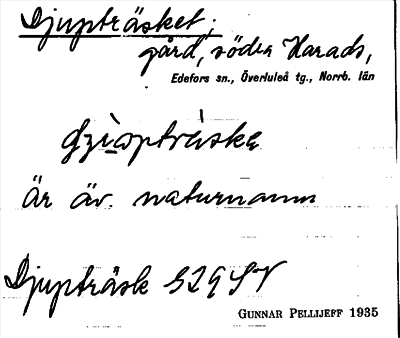 Djupträsket;
gård, södra Harads,
Edefors sn., Överluleå tg., Norrb. län
Är äv. naturnamn
Djupträsk S29SV
GUNNAR PELLIJEFF 1935